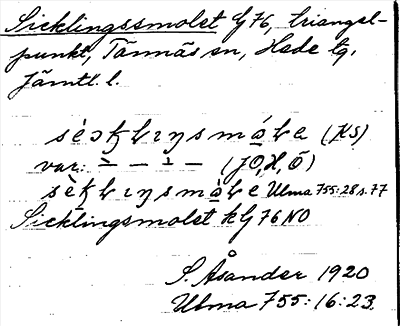 Sicklingssmolet G 76, triangel-
punkt, Tännäs sn, Hede tg,
Jämtl. l.
(KS)
var: (JO, H, Ö)
Ulma 755:28 s. 77
Sicklingsmolet kG 76 NO
S. Åsander 1920
Ulma 755:16:23.